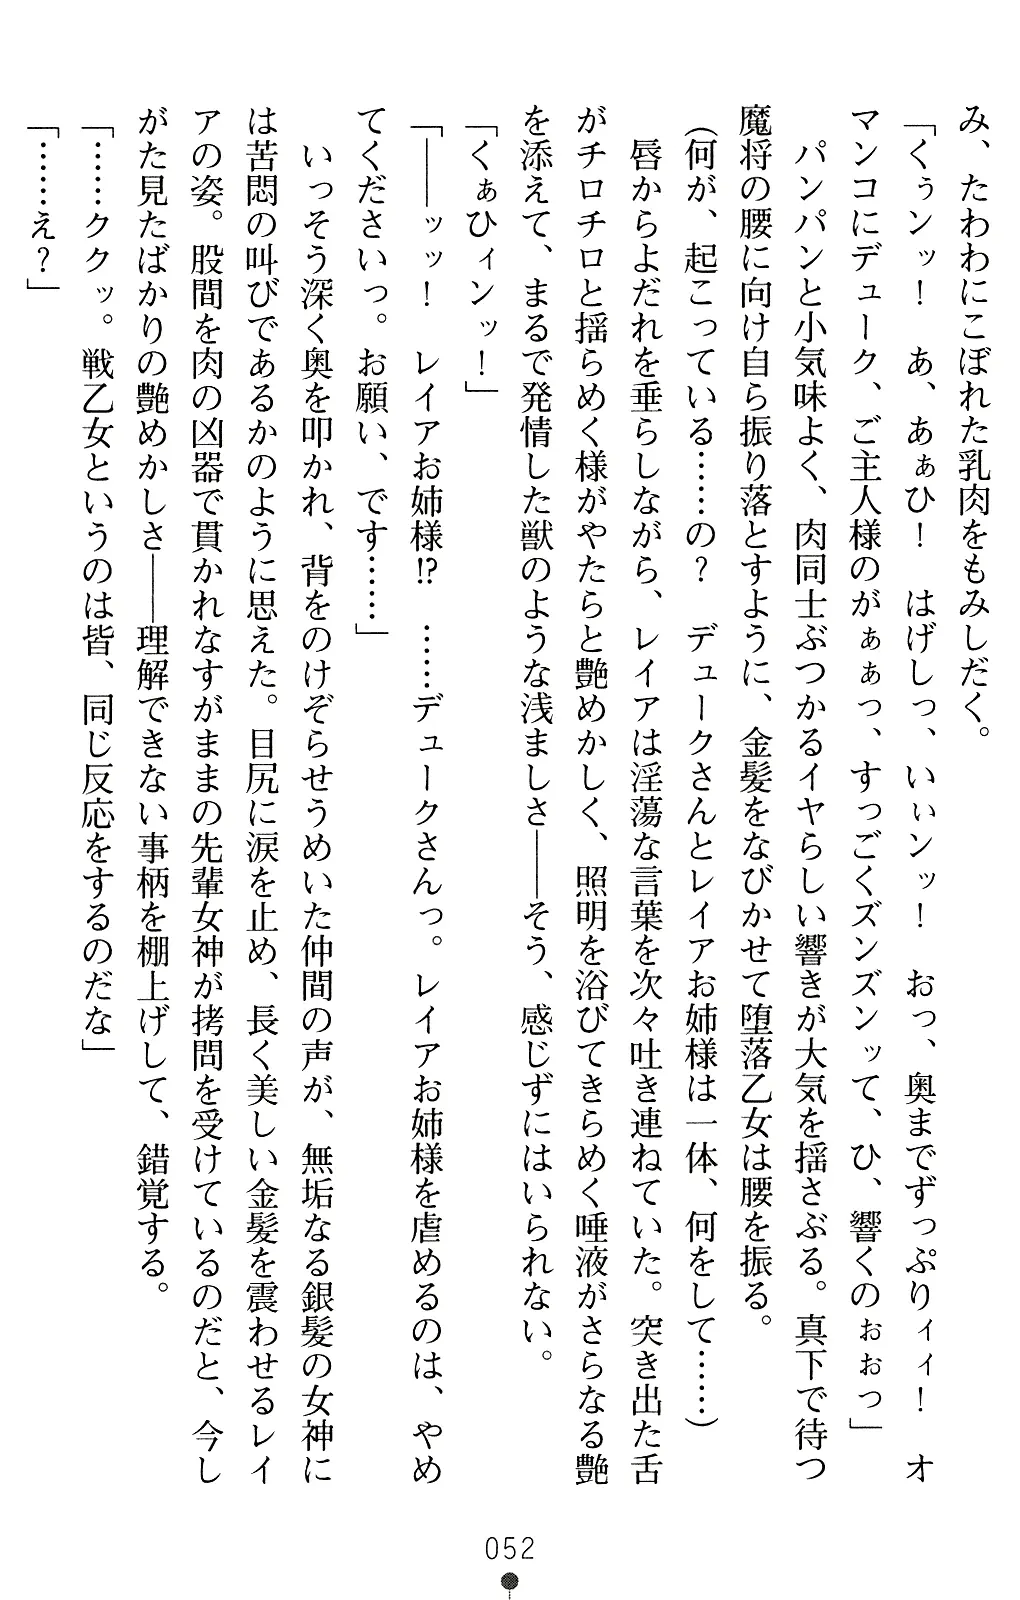 み、たわわにこぼれた乳肉をもみしだく。
「くぅンッ！　あ、あぁひ！　はげしっ、いぃンッ！　おっ、奥までずっぷりィィ！　オ
マンコにデューク、ご主人様のがぁぁっ、すっごくズンズンッて、ひ、響くのぉぉっ」
　パンパンと小気味よく、肉同士ぶつかるイヤらしい響きが大気を揺さぶる。真下で待つ
魔将の腰に向け自ら振り落とすように、金髪をなびかせて堕落乙女は腰を振る。
（何が、起こっている……の？　デュークさんとレイアお姉様は一体、何をして……）
　唇からよだれを垂らしながら、レイアは淫蕩な言葉を次々吐き連ねていた。突き出た舌
がチロチロと揺らめく様がやたらと艶めかしく、照明を浴びてきらめく唾液がさらなる艶
を添えて、まるで発情した獣のような浅ましさ――そう、感じずにはいられない。
「くぁひィンッ！」
「――ッッ！　レイアお姉様!?　……デュークさんっ。レイアお姉様を虐めるのは、やめ
てくださいっ。お願い、です……」
　いっそう深く奥を叩かれ、背をのけぞらせうめいた仲間の声が、無垢なる銀髪の女神に
は苦悶の叫びであるかのように思えた。目尻に涙を止め、長く美しい金髪を震わせるレイ
アの姿。股間を肉の凶器で貫かれなすがままの先輩女神が拷問を受けているのだと、今し
がた見たばかりの艶めかしさ――理解できない事柄を棚上げして、錯覚する。
「……ククッ。戦乙女というのは皆、同じ反応をするのだな」
「……え？」
052